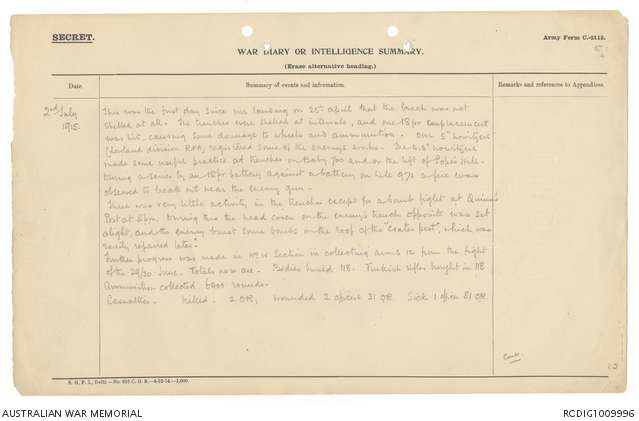 SECRET.
Army Form C.-2118.
WAR DIARY OR INTELLIGENCE SUMMARY.
(Erase alternative heading.)
Date.
Summary of events and information.
Remarks and references to Appendices.
2nd July
1915.
This was the first day since our landing on 25th April that the beach was not
shelled at all. The trenches were shelled at intervals, and one 18pr emplacement
was hit, causing some damage to wheels and ammunition. One 5" howitzer
(Lowland division RFA) registered some of the enemy's works. The howitzers
made some useful practice at trenches on Baby 700 and on the left of Pope's Hill.
During a series by an 18pr battery against a battery on hill 971 a fire was
observed to break out near the enemy gun.
There was very little activity in the trenches except for a bomb fight at Quinn's
Post at 8pm. During this the head cover on the enemy's trench opposite was set
alight, and the enemy burst some bombs on the roof of the "Crater post", which was
easily repaired later.
Further progress was made in No IV Section in collecting arms &c from the fight
of the 29/30 June. Totals now are. Bodies buried 118. Turkish rifles brought in 118
Ammunition collected 6200 rounds.
Casualties. Killed. 2 OR, wounded 2 officers 31 OR. Sick 1 officer 81 OR
Cont.
S. G. P. I., Delhi —No.
AUSTRALIAN WAR MEMORIAL
RCDIG1009996